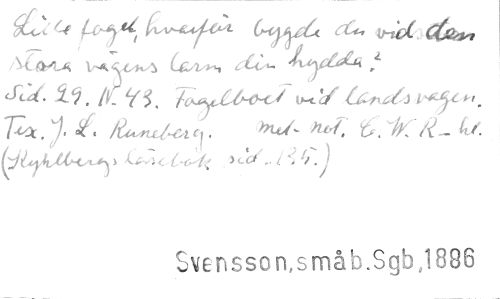 Lille fogel, hvarför bygde du vid den
stora vägens larm din hydda?
Sid. 29. N. 43. Fogelboet vid landsvägen.
Tex. J. L. Runeberg. mel-not. C. W. R-hl.
(Kyhlbergs läsebok sid. 135.)
Svensson,småb.Sgb,1886